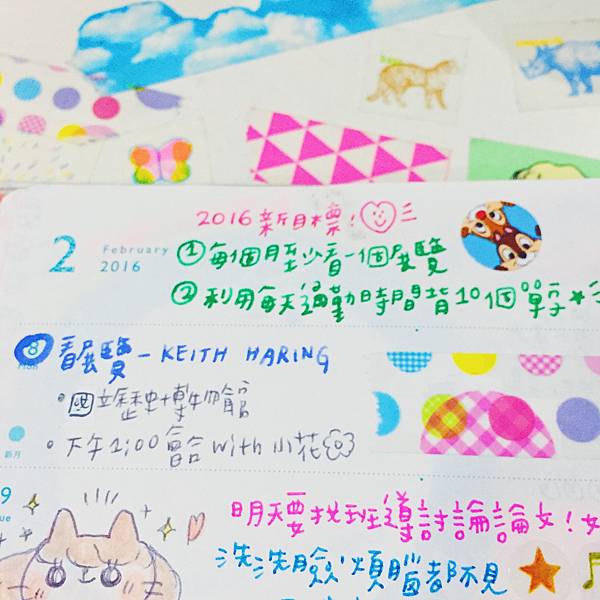 2016 新目標!
2 February
2016
① 每個月至少看一個展覽
② 利用每天通勤時間背10個單字
8 看展覽 - KEITH HARING
• 國立歷史博物館
• 下午 2:00 會合 with 小花
9
明天要找班導討論論文!
洗洗臉煩腦都不見